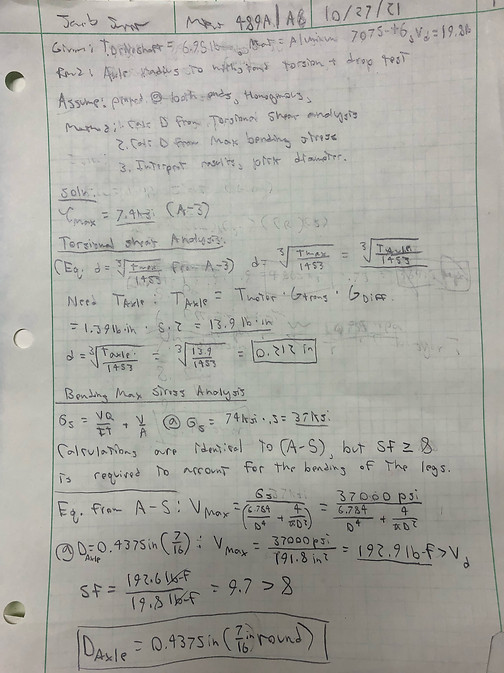 MET 489A/A8 10/27/21
Given: T Driveshaft = 6.95 lb, Mat = Aluminum 7075-t6, Vd = 19.8 lb
Find: Axle radius to withstand torsion + drop test
Assume: pinned @ both ends, Homogenous,
Method: 1. Calc D from Torsional shear analysis
2. Calc D from Max bending stress
3. Interpret results, pick diameter.
Soln:
τmax = 7.4ksi (A-3)
Torsional shear Analysis:
(Eq. d = ∛(Tmax/1453) from A-3) d = ∛(Tmax/1453) = ∛(Taxle/1453)
Need TAxle: TAxle = Tmotor · Gtrans · GDiff.
= 1.39 lb·in · 5 · 2 = 13.9 lb·in
d = ∛(Taxle/1453) = ∛(13.9/1453) = 0.212 in
Bending Max Stress Analysis
σs = VQ/It + V/A @ σs = 74ksi · .5 = 37ksi
Calculations are identical to (A-5), but Sf ≥ 8
is required to account for the bending of the legs.
Eq. from A-5: Vmax = σs/(6.784/D⁴ + 4/πD²) = 37000 psi/(6.784/D⁴ + 4/πD²)
@ DAxle = 0.4375in (7/16): Vmax = 37000psi/191.8 in² = 192.9 lb-f > Vd
Sf = 192.6 lb-f/19.8 lb-f = 9.7 > 8
DAxle = 0.4375in (7/16 in round)